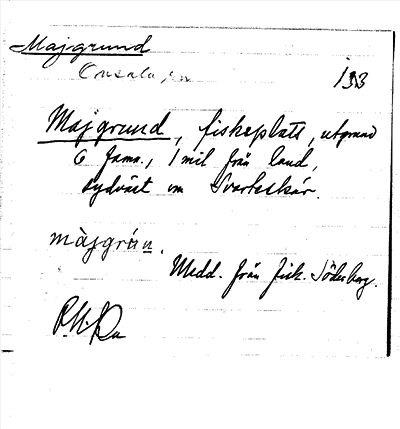 Majgrund
Onsala, sn 193
Majgrund, fiskeplats, utprand
6 famn., 1 mil från land,
sydväst om Svarteskär.
màjgrún.
Medd. från fisk. Söderberg.